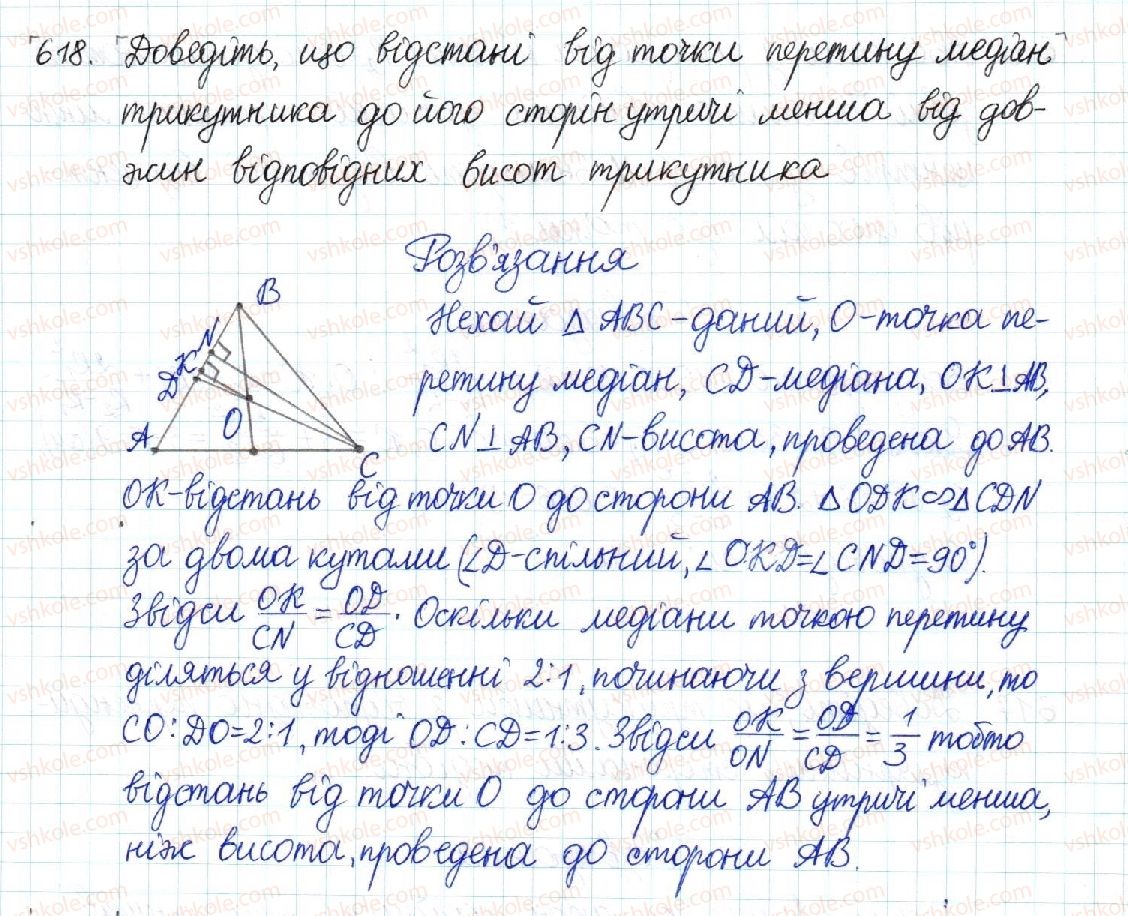 618. Доведіть, що відстані від точки перетину медіан
трикутника до його сторін утричі менша від дов-
жин відповідних висот трикутника
Розв'язання
B
N
K
D
A
O
C
Нехай △ ABC-даний, O-точка пе-
ретину медіан, CD-медіана, OK⊥AB,
CN⊥AB, CN-висота, проведена до AB.
OK-відстань від точки O до сторони AB. △ODK∽△CDN
за двома кутами (∠D-спільний, ∠OKD=∠CND=90°).
Звідси OK/CN = OD/CD. Оскільки медіани точкою перетину
діляться у відношенні 2:1, починаючи з вершини, то
CO:DO=2:1, тоді OD:CD=1:3. Звідси OK/ON = OD/CD = 1/3 тобто
відстань від точки O до сторони AB утричі менша,
ніж висота, проведена до сторони AB.
vshkole.com